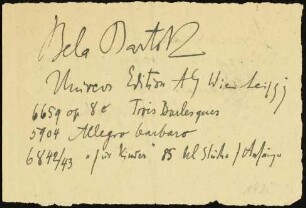 Bela Bartok
Univers Edition AG Wien Leipzig
6659 op 8c Trois Burlesques
5904 Allegro barbaro
6842/43 "für Kinder" 85 kl Stücke / Anfänge